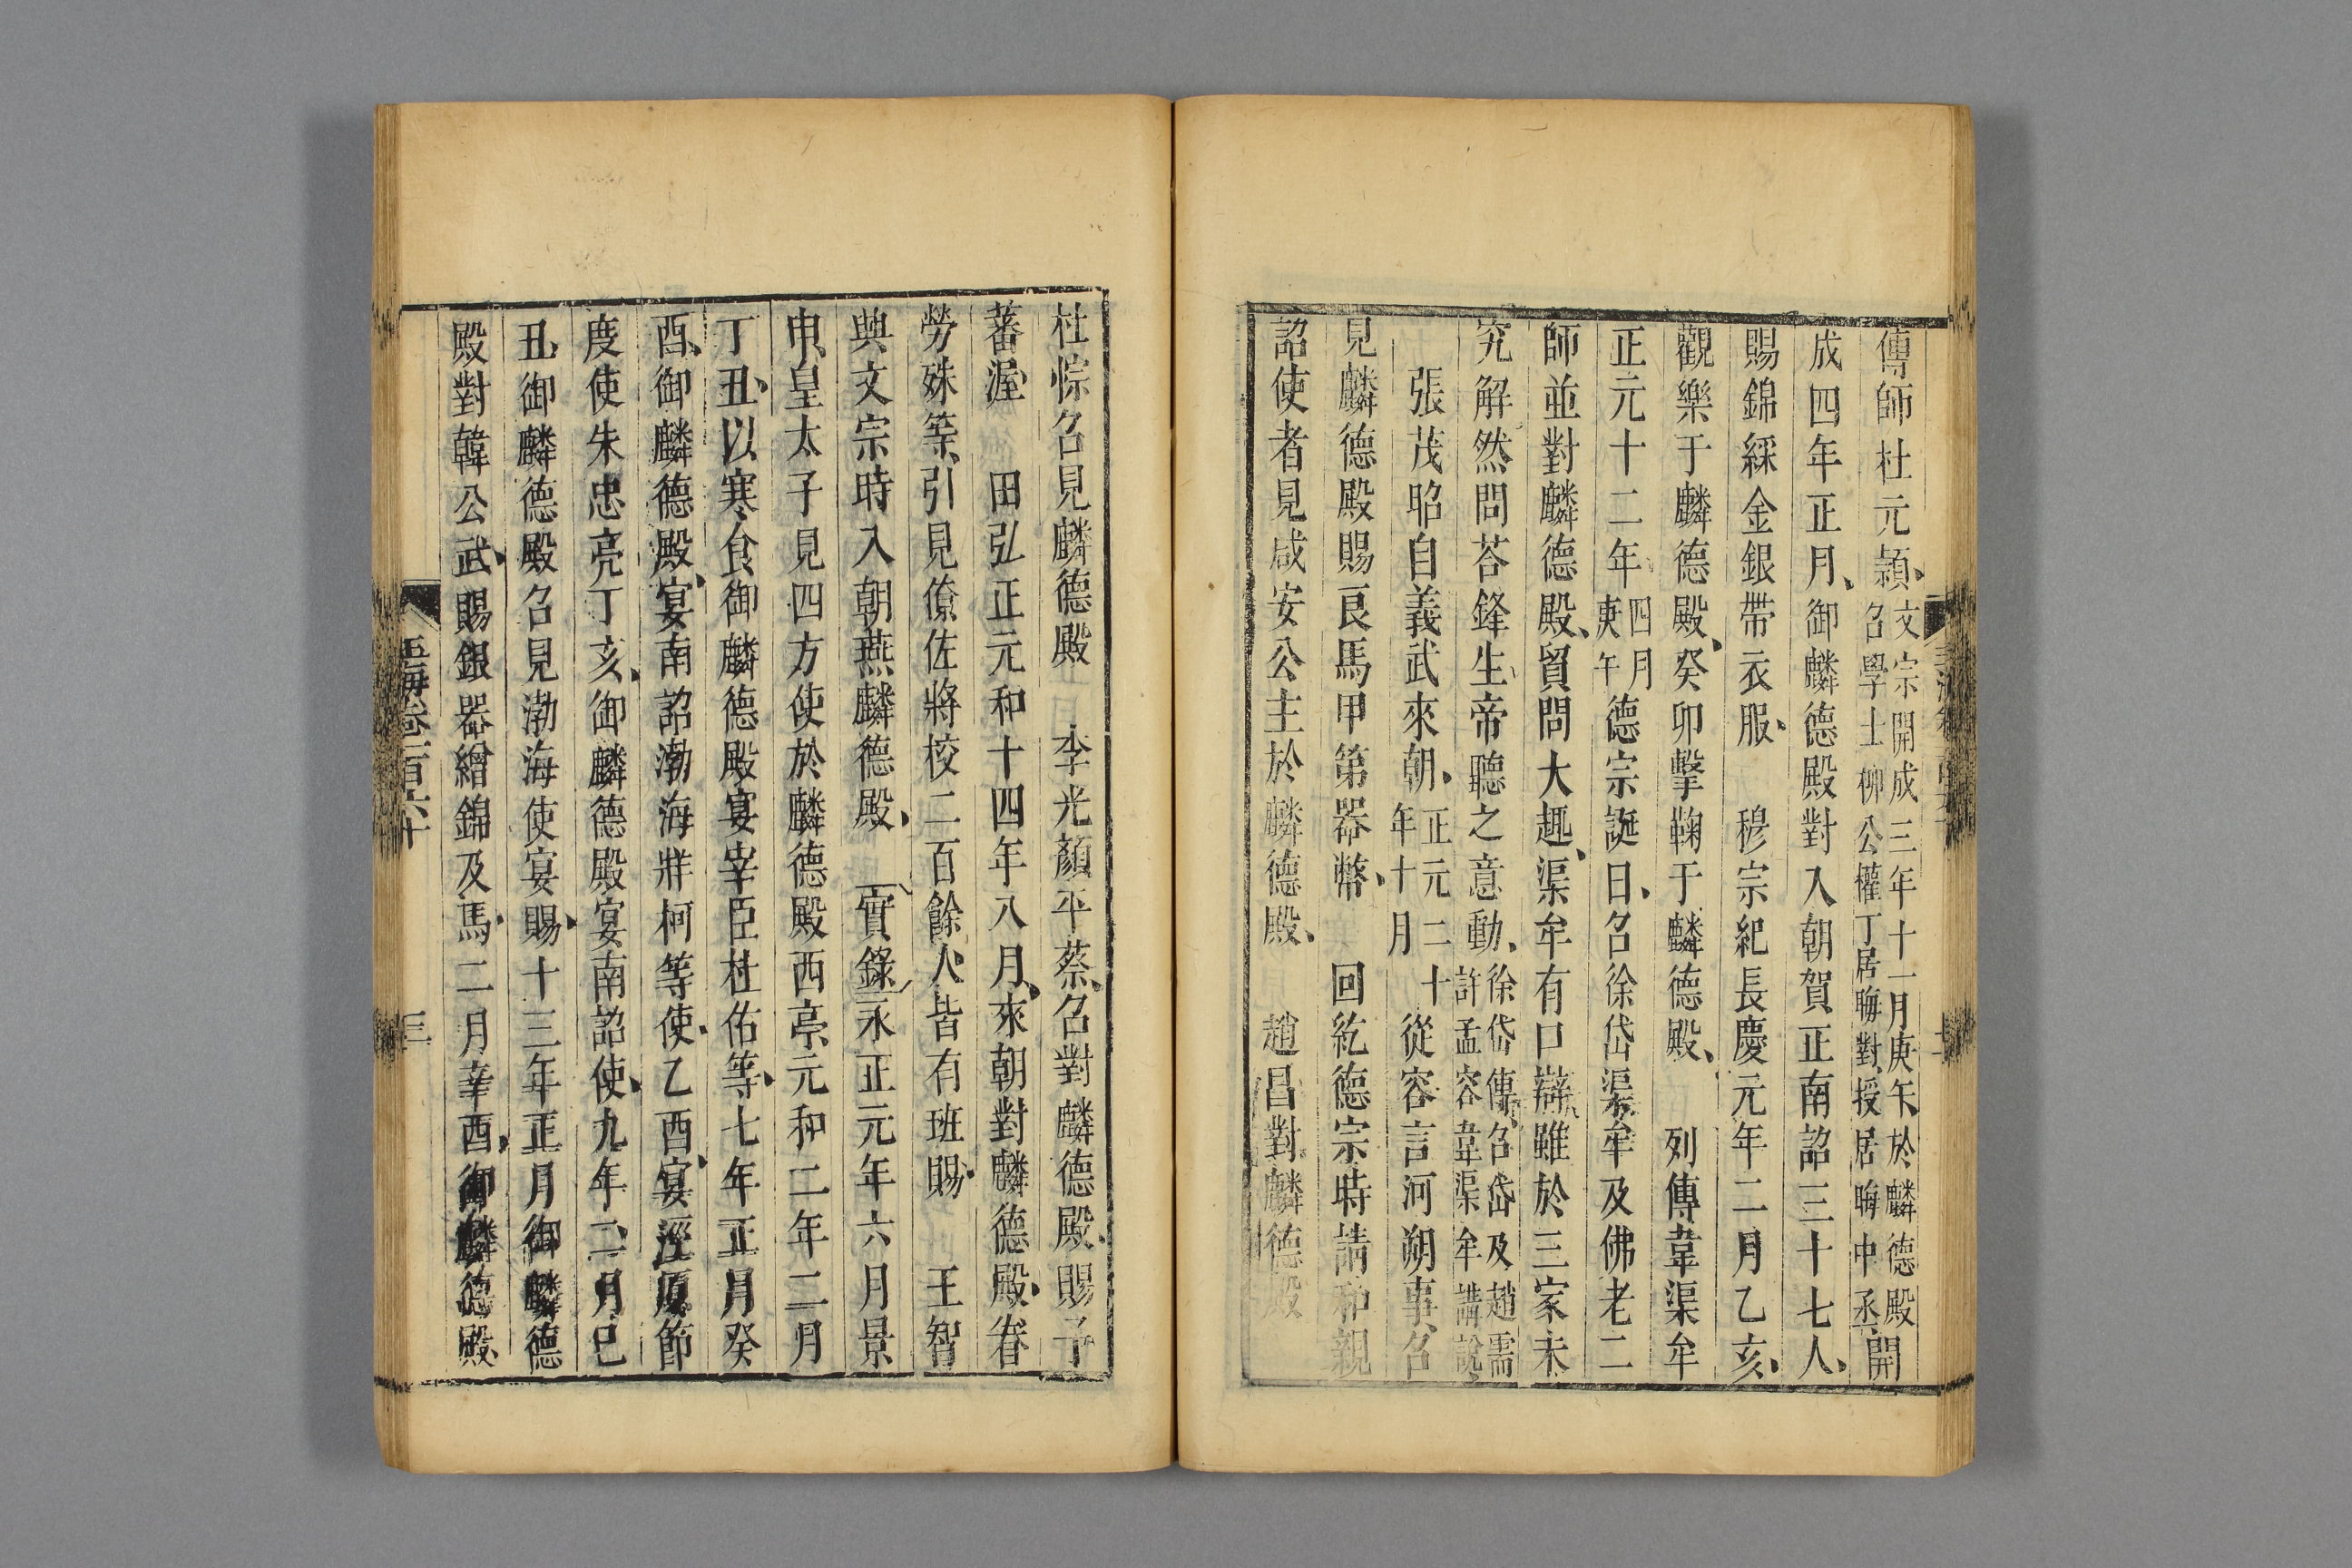 傳師杜元頴文宗開成三年十一月庚午於麟德殿召學士柳公權丁居晦對授居晦中丞開
成四年正月御麟德殿對入朝賀正南詔三十七人
賜錦綵金銀帶衣服 穆宗紀長慶元年二月乙亥
觀樂于麟德殿癸卯擊鞠于麟德殿 列傳韋渠牟
正元十二年四月庚午德宗誕日召徐岱渠牟及佛老二
師並對麟德殿質問大趣渠牟有口辯雖於三家未
究解然問荅鋒生帝聽之意動徐岱傳召岱及趙需許孟容韋渠牟講說
張茂昭自義武來朝正元二十年十月從容言河朔事召
見麟德殿賜良馬甲第器幣 回紇德宗時請和親
詔使者見咸安公主於麟德殿 趙昌對麟德殿
杜悰召見麟德殿 李光顏平蔡召對麟德殿賜予
蕃渥 田弘正元和十四年八月來朝對麟德殿眷
勞殊等引見僚佐將校二百餘人皆有班賜 王智
興文宗時入朝燕麟德殿 實錄永正元年六月景
申皇太子見四方使於麟德殿西亭元和二年二月
丁丑以寒食御麟德殿宴宰臣杜佑等七年正月癸
酉御麟德殿宴南詔渤海牂柯等使乙酉宴涇原節
度使朱忠亮丁亥御麟德殿宴南詔使九年二月巳
丑御麟德殿召見渤海使宴賜十三年正月御麟德
殿對韓公武賜銀器繒錦及馬二月辛酉御麟德殿
玉海卷一百六十
三